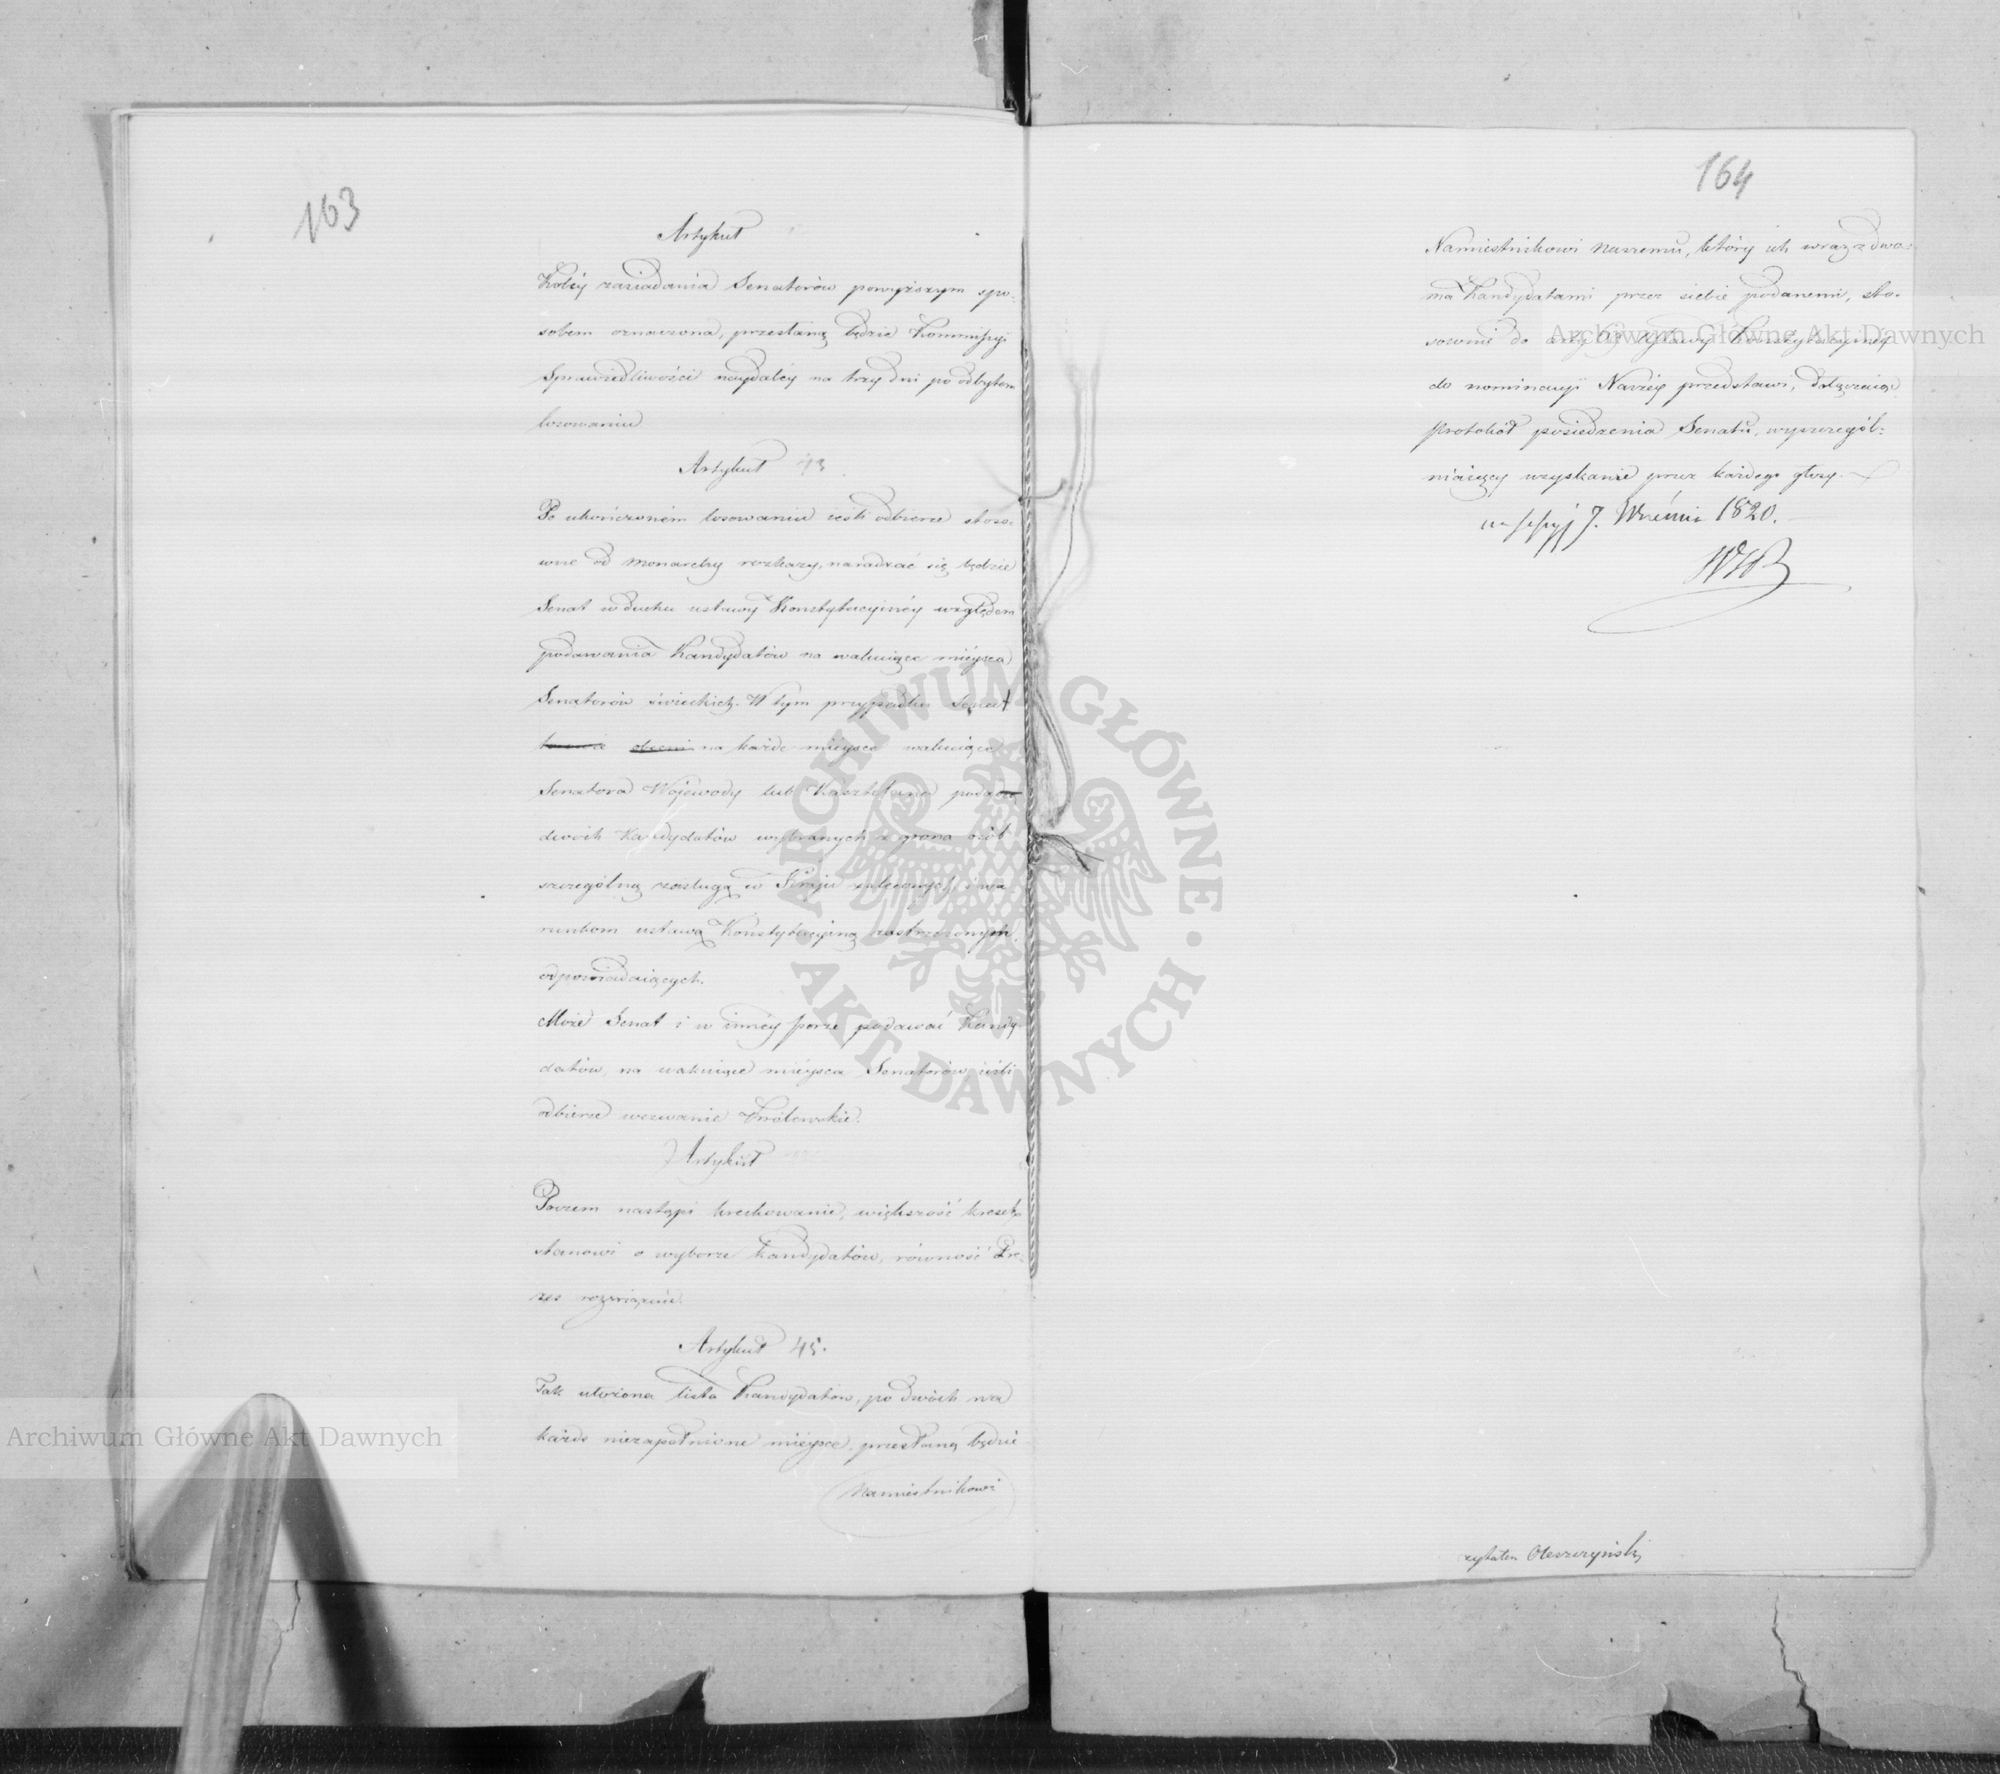 163
Artykuł
Koléy zasiadania Senatorów powyższym spo-
sobem oznaczona, przesłaną będzie Kommissyi
Sprawiedliwości naydaléy na trzy dni po odbytem
losowaniu
Artykuł 43.
Po ukończoném losowaniu ieśli odbierze stoso-
wne od Monarchy rozkazy, naradzać się będzie
Senat w duchu ustawy Konstytucyinéy względem
podawania Kandydatów na wakuiące mieysca
Senatorów świeckich. W tym przypadku Senat
na każde mieysce wakuiące
Senatora Wojewody lub Kasztelana poda
dwóch Kandydatów wybranych z grona osób
szczególną zasługą w Kraju zaleconych, i wa
runkom ustawą Konstytucyiną zastrzeżonym,
odpowiadaiących.
Może Senat i w innéy porze podawać Kandy-
datów, na wakuiące mieysca Senatorów ieśli
odbierze wezwanie Królewskie.
Artykuł
Poczem nastąpi kreskowanie, większość kresek
stanowi o wyborze Kandydatów, równość Pre-
zes rozwiąże.
Artykuł 45.
Tak ułożona lista Kandydatów, po dwóch na
każde niezapełnione mieysce, przesłaną będzie
Namiestnikowi
164
Namiestnikowi Naszemu, który ich wraz z dwo-
ma Kandydatami przez siebie podanemi, sto-
sownie do Ustawy Konstytucyinéy
do nominacyi Naszéy przedstawi, dołączaiąc
protokół posiedzenia Senatu, wyszczegól-
niaiący uzyskanie przez każdego głosy.
na sessyi 7. Września 1820.
czytałem Oleszczyński
Archiwum Główne Akt Dawnych
Archiwum Główne Akt Dawnych
ARCHIWUM GŁÓWNE · AKT DAWNYCH ·